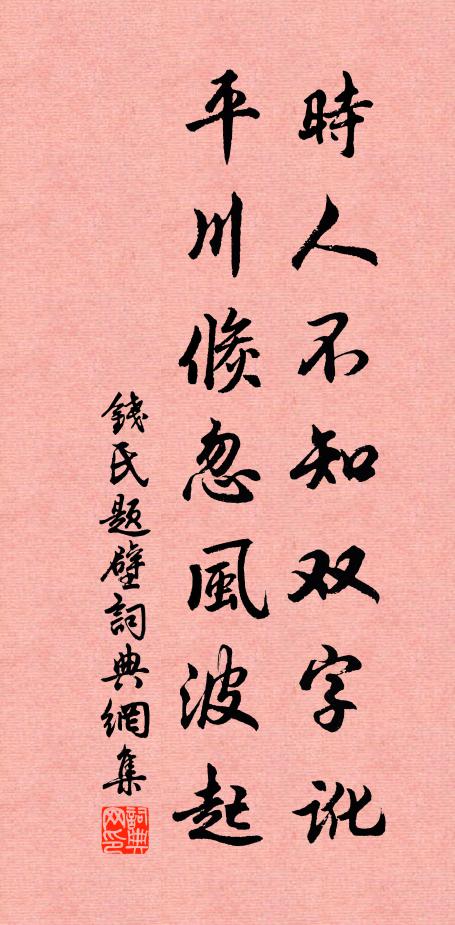 時人不知双字訛
平川倐忽風波起
錢氏題壁詞典網集
詞典网印